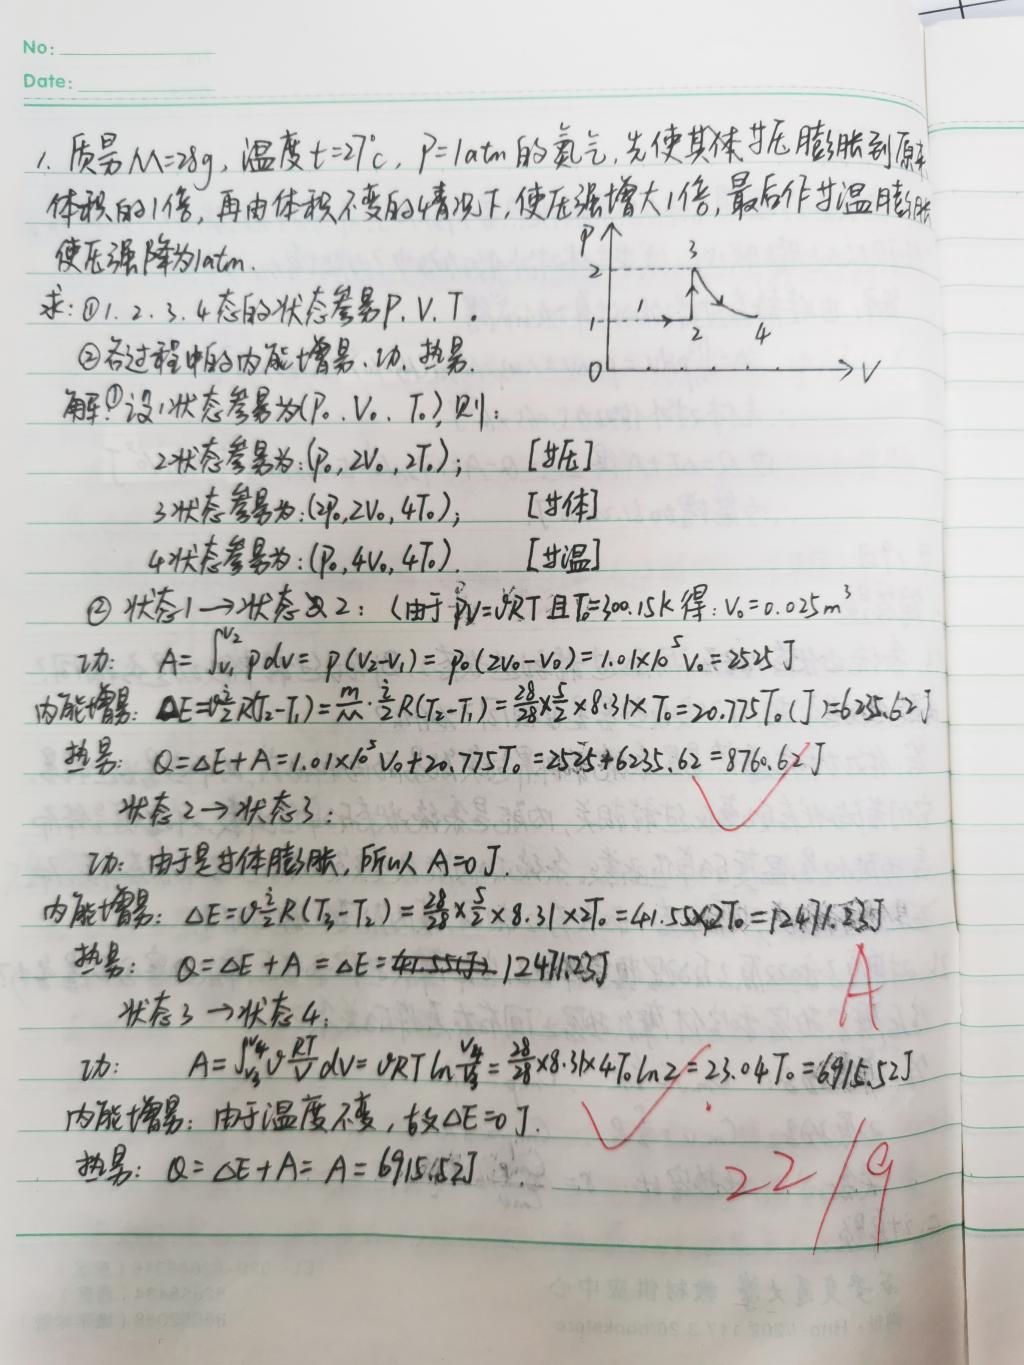 No:
Date:
1. 质量M=28g, 温度t=27°C, P=1atm的氮气, 先使其体等压膨胀到原来
体积的1倍, 再由体积不变的情况下, 使压强增大1倍, 最后作等温膨胀
使压强降为1atm.
求: ①1. 2. 3. 4态的状态参量P. V. T.
②各过程中的内能增量、功、热量.
P
2
3
1
1
2
4
0
V
解: ①设1状态参量为(P₀. V₀. T₀), 则:
2状态参量为: (P₀, 2V₀, 2T₀); [等压]
3状态参量为: (2P₀, 2V₀, 4T₀); [等体]
4状态参量为: (P₀, 4V₀, 4T₀). [等温]
② 状态1→状态2: (由于PV=νRT且T₀=300.15K得: V₀=0.025m³
功: A=∫_{V₁}^{V₂} pdv=P(V₂-V₁)=P₀(2V₀-V₀)=1.01×10⁵V₀=2525J
内能增量: ΔE=ν i/2 R(T₂-T₁)=m/M · i/2 R(T₂-T₁)=28/28×5/2×8.31×T₀=20.775T₀(J)=6235.62J
热量: Q=ΔE+A=1.01×10⁵V₀+20.775T₀=2525+6235.62=8760.62J
状态2→状态3:
功: 由于是等体膨胀, 所以A=0J.
内能增量: ΔE=ν i/2 R(T₃-T₂)=28/28×5/2×8.31×2T₀=41.55×2T₀=12471.23J
热量: Q=ΔE+A=ΔE=12471.23J
状态3→状态4:
功: A=∫_{V₃}^{V₄} ν RT/V dV=νRT ln V₄/V₃=28/28×8.31×4T₀ln2=23.04T₀=6915.52J
内能增量: 由于温度不变, 故ΔE=0J.
热量: Q=ΔE+A=A=6915.52J
A
22/9